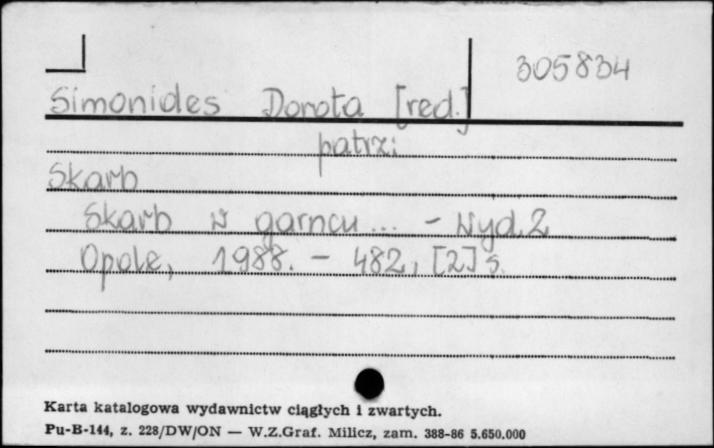 305834
Simonides Dorota [red.]
patrz:
Skarb
Skarb w garncu... - Wyd. 2
Opole, 1988. - 482, [2] s.
Karta katalogowa wydawnictw ciągłych i zwartych.
Pu-B-144, z. 228/DW/ON — W.Z.Graf. Milicz, zam. 388-86 5.650.000